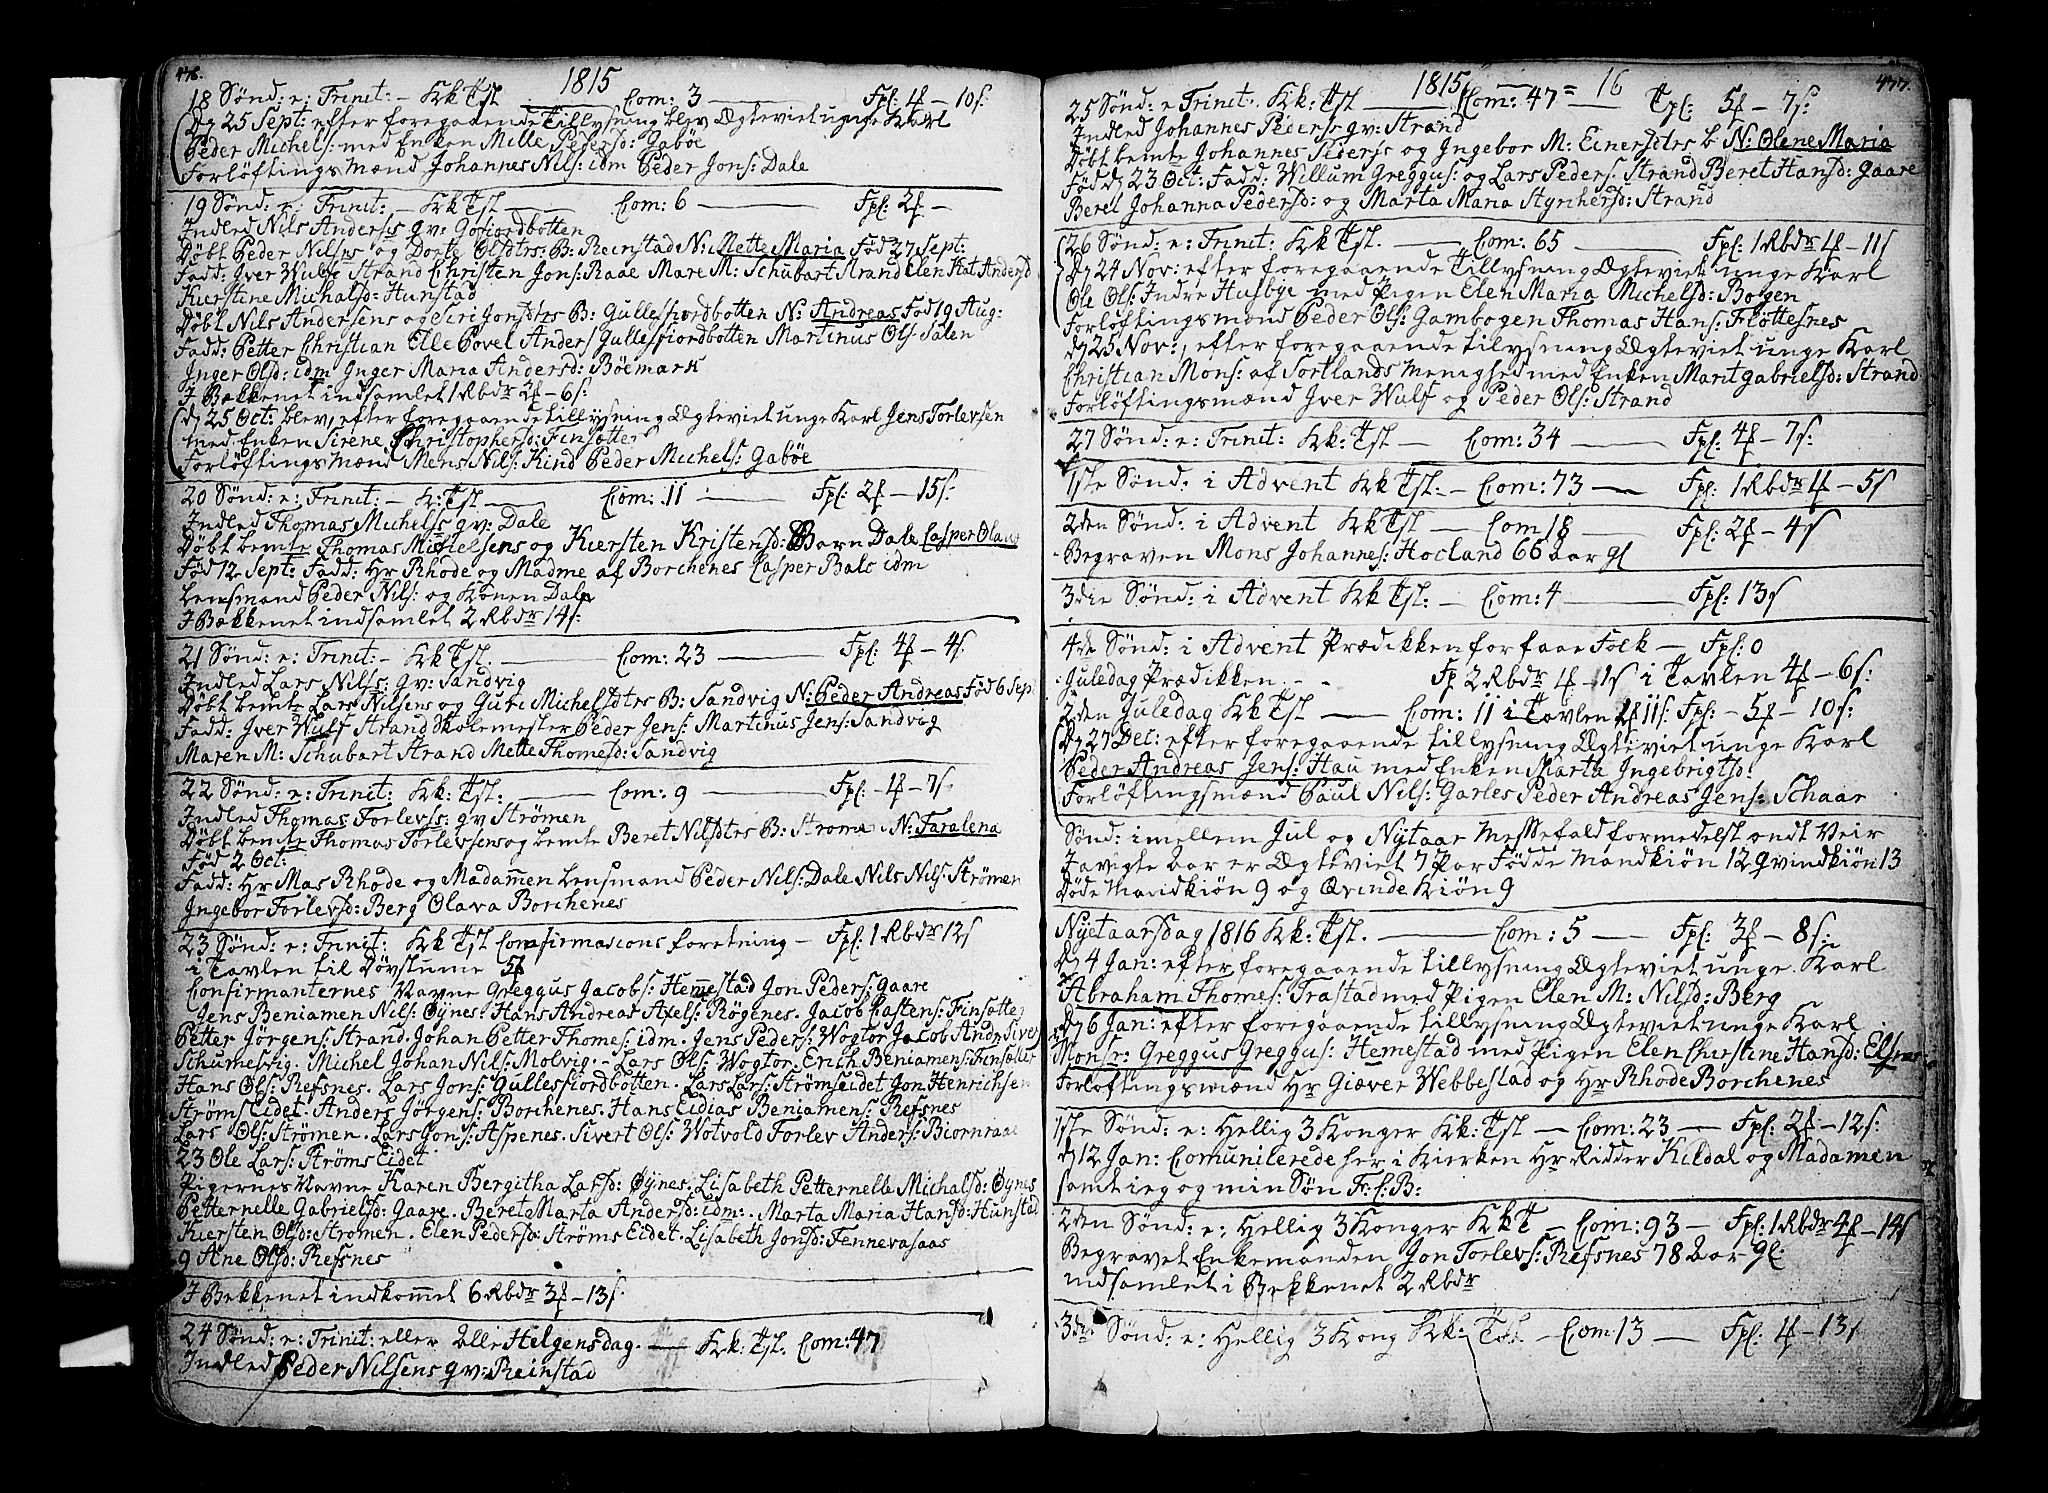 476.
1815
18 Sønd: e: Trinit: – Kk Tst Com: 3 Fpl: 4f – 10s:
D 25 Sept: efter foregaaende Tillysning blev Ægteviet unge Karl
Peder Michels: med Enken Mille Pedersd: Gabøe
Forløftingsmænd Johannes Nils: idm Peder Jons: Dale
19 Sønd: e: Trinit: – Kk Tst Com: 6 Fpl: 2f –
Indled Nils Anderses qv: Gofiordbotten
Døbt Peder Nilses og Dorte Olsdtrs: B: Reinstad N: Mette Maria Fød 27 Sept:
Fadd: Iver Wulf Strand Christen Jons: Raae Mare M: Schubart Strand Elen Kat Andersd
Kierstine Michalsd: Hunstad
Døbt Nils Andersens og Siri Jonsdtrs B: Gullesfiordbotten N: Andreas Fød 19 Aug:
Fadd: Petter Christian Elle Povel Anders Gullesfiordbotten Martinus Ols Salen
Inger Olsd: idm Inger Maria Andersd: Böemark
I Bækkenet indsamlet 1 Rbdr 2f – 6s:
d 25 Oct: blev, efter foregaaende tillysning Ægteviet unge Karl Jens Torlevsen
med Enken Sirene Christophersd: Finsætter
Forløftingsmænd Mens Nils: Kind Peder Michels: Gabøe
20 Sønd: e: Trinit: – K: Tst Com: 11 Fpl: 2f – 15s:
Indled Thomas Michels qv: Dale
Døbt bemte Thomas Michelsens og Kiersten Kristensd: Barn Dale Casper Olaus
Fød 12 Sept: Fadd: Hr Rhode og Madme af Borchenes Casper Bals idm
Lensmand Peder Nils: og Konen Dale
I Bækkenet indsamlet 2 Rbdr 14s:
21 Sønd: e: Trinit: – Kk Tst. Com: 23 Fpl: 4f – 4s.
Indled Lars Nilss: qv: Sandvig
Døbt bemte Lars Nilsens og Guri Michelsdtrs B: Sandvig N: Peder Andreas Fød 6 Sept
Fadd: Iver Wulf Strand Skolemester Peder Jens: Martinus Jens: Sandvog
Maren M: Schubart Strand Mette Thomesd: Sandvig
22 Sønd: e: Trinit: Kk: Tst: Com: 9 Fpl: – 4 – 7s.
Indled Thomas Torlevss: qv Strömen
Døbt bemte Thomas Torlevsens og bemte Beret Nilsdtrs B: Strome N: Taralena
Fød 2 Oct:
Fadd: Hr Mas Rhode og Madammen Lensmand Peder Nils: Dale Nils Nils: Strömen
Ingebor Torlevsd: Berg Olava Borchenes
23 Sønd: e: Trinit: Kk Tst Confirmasions foretning – Fpl: 1 Rbdr 12s
i Tavlen til Døvstume 5f
Confirmanternes Navne Greggus Jacobs: Hemmestad Jon Peders: Gaare
Jens Beniamen Nils: Øynes. Hans Andreas Axels: Rögenes. Jacob Castens: Finsætter
Petter Jörgens: Strand. Johan Petter Thomes: idm. Jens Peders: Wogtor Jacob Andr Sivers
Schumesvig. Michel Johan Nils: Molvig. – Lars Ols: Wogtor. Erich Beniamens: Finsætter
Hans Ols: Refsnes. Lars Jons: Gullesfiordbotten. Lars Lars: Strömseidet Jon Henrichsen
Ströms Eidet. Anders Jörgens: Borchenes. Hans Eidias Beniamens: Refsnes
Lars Ols: Strömen. Lars Jons: Aspenes. Sivert Ols: Wotvold Torlev Anders: Biornraae
23 Ole Lars: Ströms Eidet
Pigernes Navne Karen Bergitha Larsd: Øynes. Lisabeth Petternelle Michalsd: Øynes
Petternelle Gabrielsd: Gaare. Beret Marta Andersd: idm: . Marta Maria Hansd: Hunstad
Kiersten Olsd: Strömen. Elen Pedersd: Ströms Eidet. Lisabeth Jonsd: Fennevasaas
9 Ane Olsd: Refsnes
I Bekkenet indkommet 6 Rbdr 3f – 13s.
24 Sønd: e: Trinit: eller Alle Helgensdag. Kk: Tst. Com: 47
Indled Peder Nilsens qv: Reinstad
1815 – = 16
477.
25 Sønd: e Trinit. Kk: Tst Com: 47 – Tpl: 5f – 7s:
Indled Johannes Peders qv: Strand
Døbt bemte Johannes Peders og Ingebor M: Einersdtrs b N: Olene Maria
Fød d 23 Oct: Fadd: Willum Greggus: og Lars Peders: Strand Beret Hansd: Gaare
Berel Johanna Pedersd: og Marta Maria Stynhersd: Strand
26 Sønd: e: Trinit: Kk Tst. Com: 65 Fpl: 1 Rbdr 4f – 11s
d 24 Nov: efter foregaaende Tillysning Ægteviet unge Karl
Ole Ols: Indre Husbye med Pigen Elen Maria Michelsd: Bogen
Forløftingsmænd Peder Ols: Gambogen Thomas Hans: Fløttesnes
d 25 Nov:, efter foregaaende tilysning Ægteviet unge Karl
Christian Mons: af Sortlands Menighed med Enken Marit Gabrielsd: Strand
Forløftingsmænd Iver Wulf og Peder Ols: Strand
27 Sønd: e: Trinit: Kk: Tst – Com: 34 Fpl: 4f – 7s.
1ste Sønd: i Advent Kk Tst: – Com: 73 – Fpl: 1 Rbdr 4f – 5s
2den Sønd: i Advent Kk Tst – Com 18 – Fpl: 2f – 4s
Begraven Mons Johannes: Hocland 66 aar gl
3die Sønd: i Advent Kk Tst: – Com: 4 Fpl: 13s
4de Sønd: i Advent Prædikken for faae Folk – Fpl: 0
Juledag Prædikken – – Fp 2 Rbdr 4f – 1s i Tavlen 4f – 6s:
2den Juledag Kk Tst Com: 11 i Tavlen 2f 11s: Fpl: – 5f – 10s:
D 27 Dec: efter foregaaende tillysning Ægteviet unge Karl
Peder Andreas Jens: Hau med Enken Marta Ingebrigtsd:
Forløftingsmænd Paul Nils: Garles Peder Andreas Jens: Schaar
Sønd: imellem Jul og Nytaar Messefald formedelst ondt Veir
I avigte aar er Ægteviet 7 Par Fødde Mandkiön 12 Qvindkiön 13
Døde Mandkiön 9 og Qvinde Kiön 9
Nyetaarsdag 1816 Kk: Tst. Com: 5 – Fpl: 3f – 8s:
d 4 Jan: efter foregaaende tillysning Ægteviet unge Karl
Abraham Thomes: Trastad med Pigen Elen M: Nilsd: Berg
d 6 Jan: efter foregaaende tillysning Ægteviet unge Karl
Monsr: Greggus Greggus: Hemestad med Pigen Elen Christine Hansd: Elsnes
Forløftingsmænd Hr Giæver Webbestad og Hr Rhode Borchenes
1ste Sønd: e: Hellig 3 Konger Kk: Tst – Com: 23 – Fpl: 2f – 12s:
d 12 Jan: Comunicerede her i Kierken Hr Ridder Kildal og Madamen
samt ieg og min Søn Fr: C: B:
2den Sønd: e: Hellig 3 Konger Kk T – Com: 93 – Fpl: 1 Rbdr 4f – 14s
Begravet Enkemanden Jon Torlevs: Refsnes 78 Aar gl:
indsamlet i Bekkenet 2 Rbdr
3die Sønd: e: Hellig 3 Kong Kk: Tst – Com: 13 – Fpl: 4f – 13s